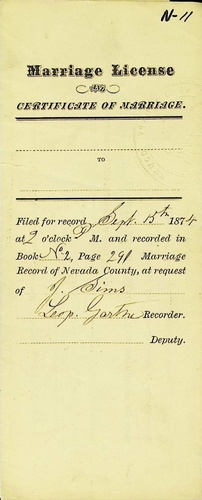 N-11
Marriage License
AND
CERTIFICATE OF MARRIAGE.
TO
Filed for record, Sept. 15th 1874
at 2 o'clock P M. and recorded in
Book No 2, Page 291 Marriage
Record of Nevada County, at request
of J. Sims
Leop. Garthe Recorder.
Deputy.